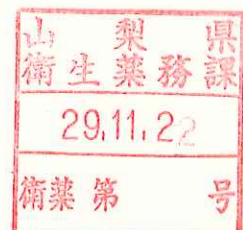 山梨県
衛生薬務課
29.11.22
衛薬第 号